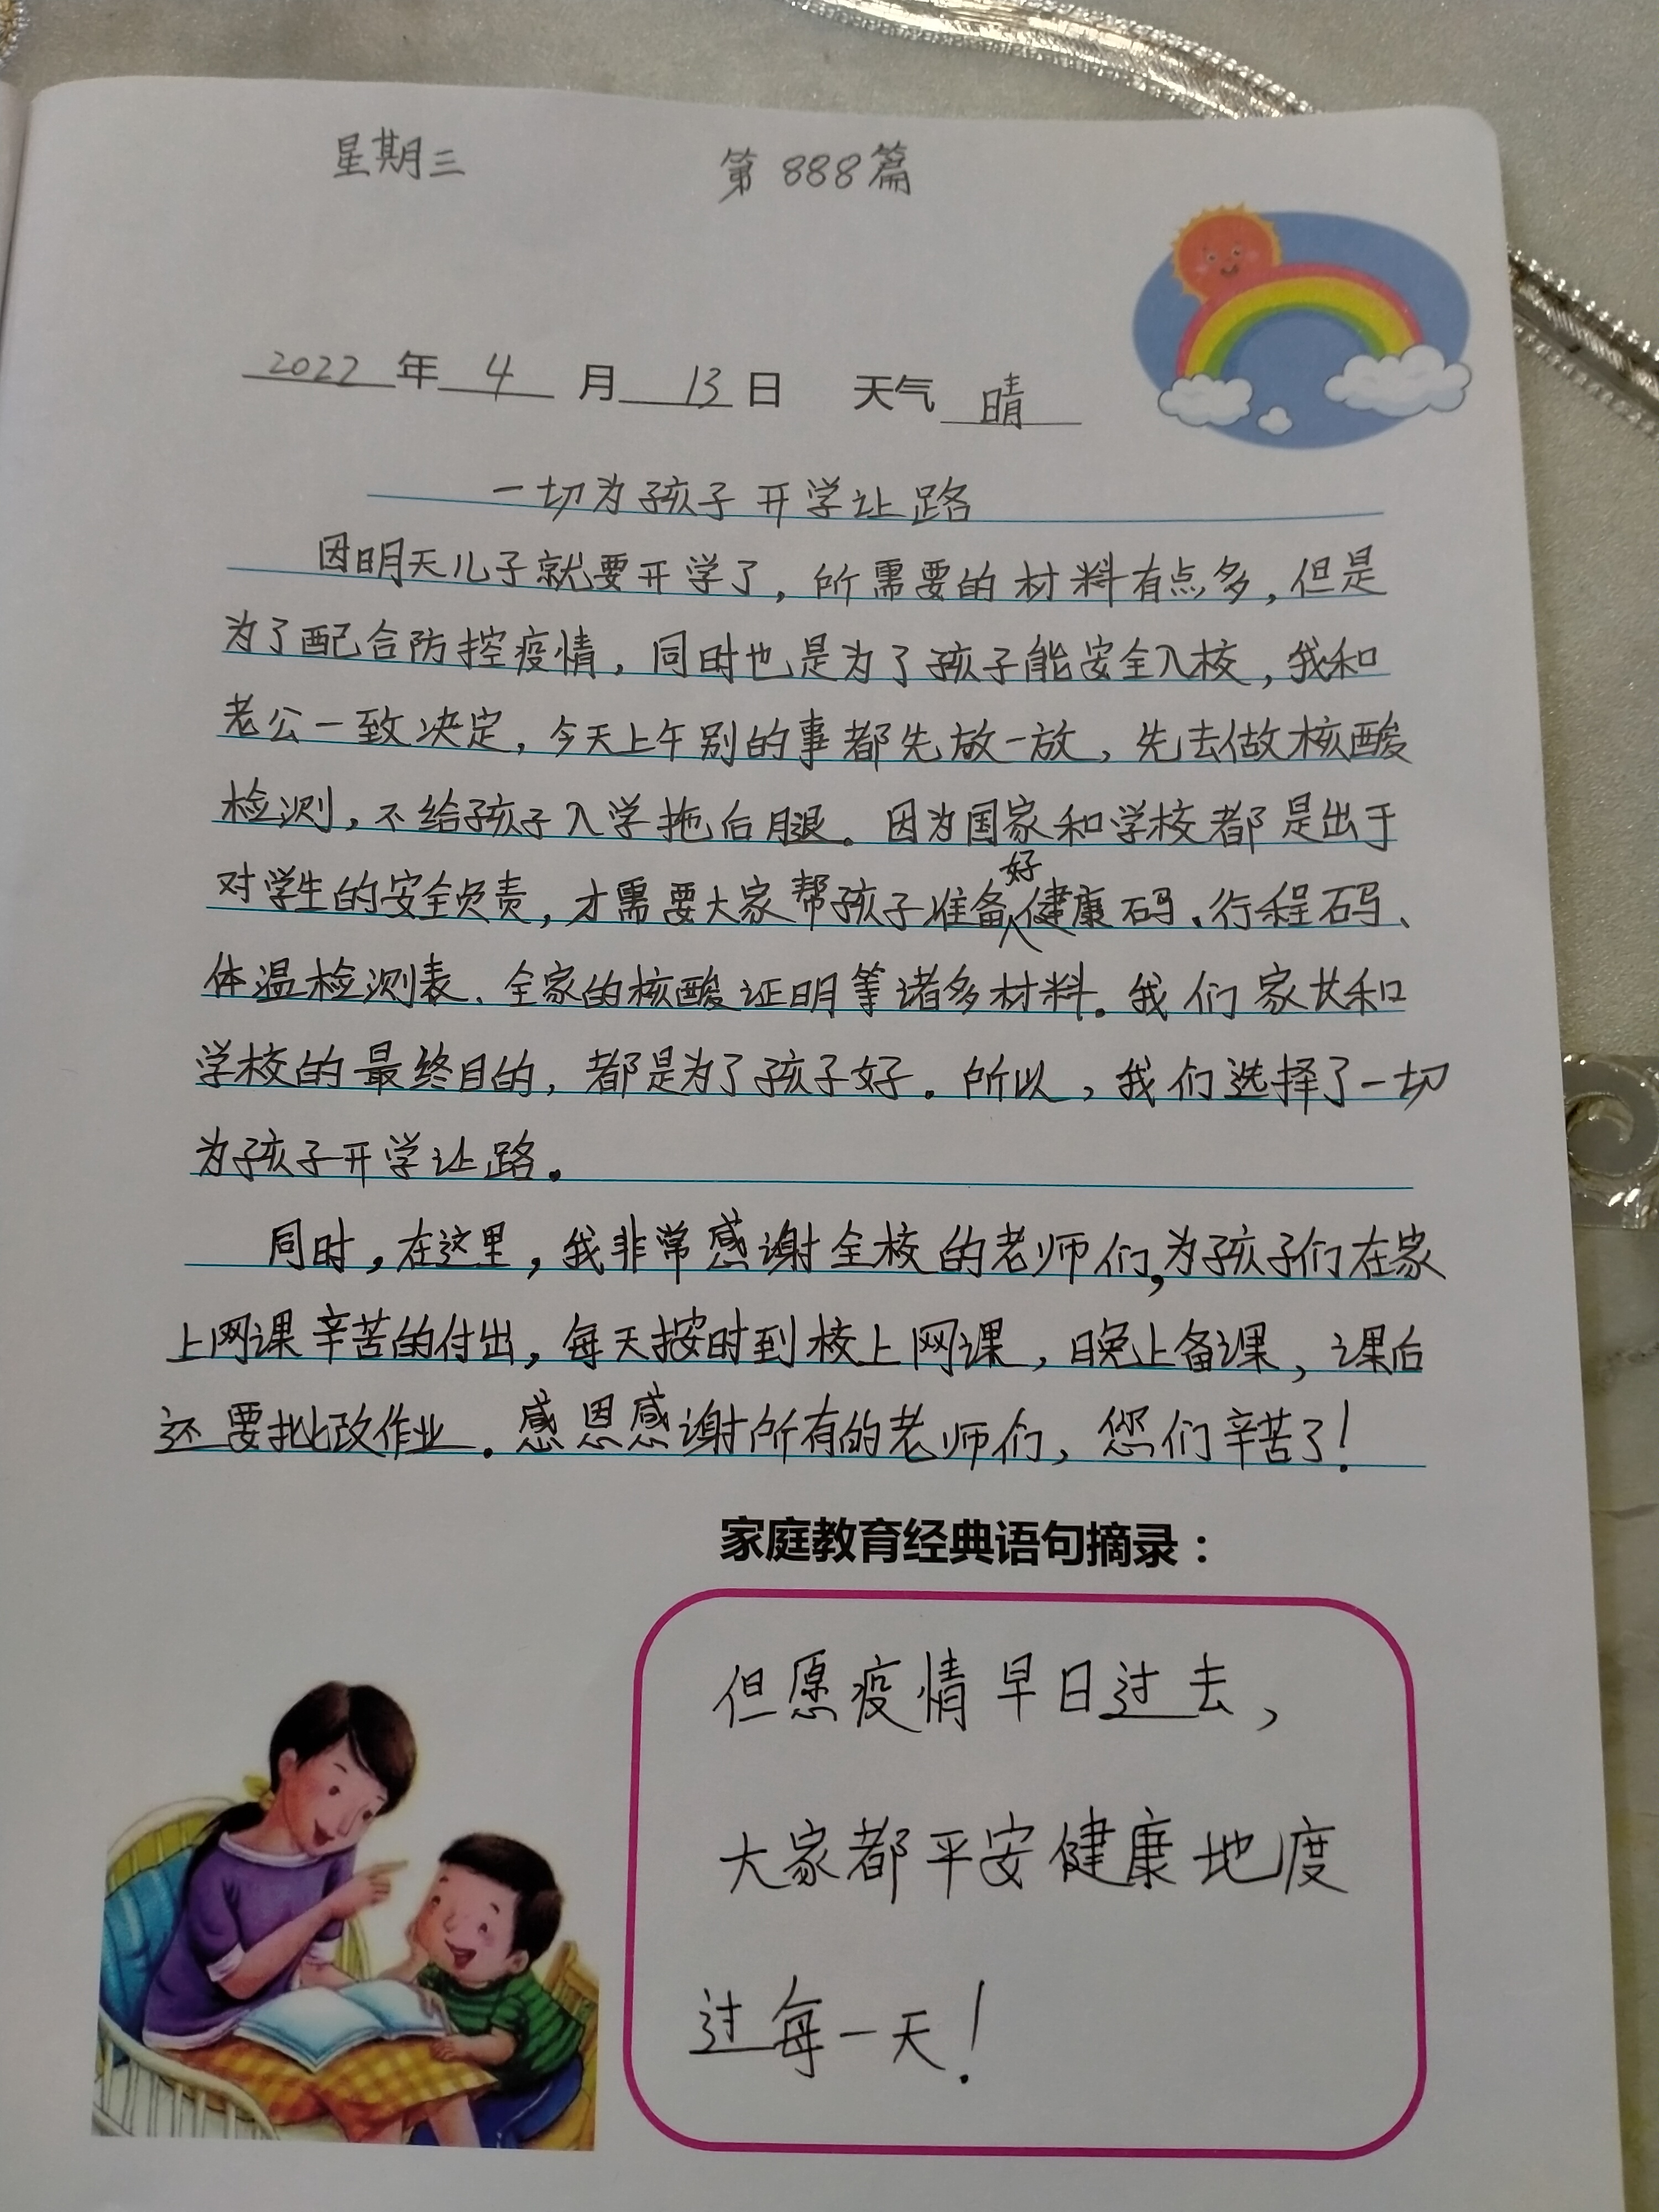 星期三 第888篇
2022年4月13日 天气 晴
一切为孩子开学让路
因明天儿子就要开学了，所需要的材料有点多，但是
为了配合防控疫情，同时也是为了孩子能安全入校，我和
老公一致决定，今天上午别的事都先放一放，先去做核酸
检测，不给孩子入学拖后腿。因为国家和学校都是出于
对学生的安全负责，才需要大家帮孩子准备好健康码、行程码、
体温检测表、全家的核酸证明等诸多材料。我们家长和
学校的最终目的，都是为了孩子好。所以，我们选择了一切
为孩子开学让路。
同时，在这里，我非常感谢全校的老师们，为孩子们在家
上网课辛苦的付出，每天按时到校上网课，晚上备课，课后
还要批改作业。感恩感谢所有的老师们，您们辛苦了！
家庭教育经典语句摘录：
但愿疫情早日过去，
大家都平安健康地度
过每一天！